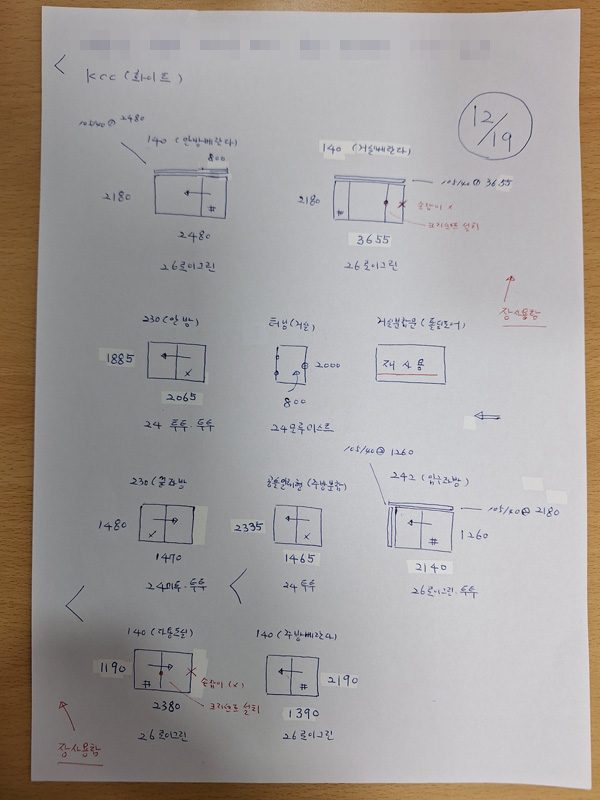 KCC (화이트)
12/19
105/40@ 2480
140 (안방베란다)
800
2180
#
2480
26로이그린
140 (거실베란다)
105/40@ 3655
2180
#
손잡이 x
크리센트 설치
3655
26로이그린
잠사용함
230 (안방)
1885
x
2065
24 투투.투투
터닝(거실)
2000
800
24모루미스트
거실분합문 (폴딩도어)
재사용
230 (좌방)
1480
x
1470
24미투.투투
공틀일체형 (주방분합)
2335
x
1465
24투투
105/40@ 1260
242 (입구좌방)
105/40@ 2180
1260
#
2140
26로이그린.투투
140 (다용도실)
1190
#
손잡이 (x)
크리센트 설치
2380
26로이그린
140 (주방베란다)
2190
#
1390
26로이그린
잠사용함